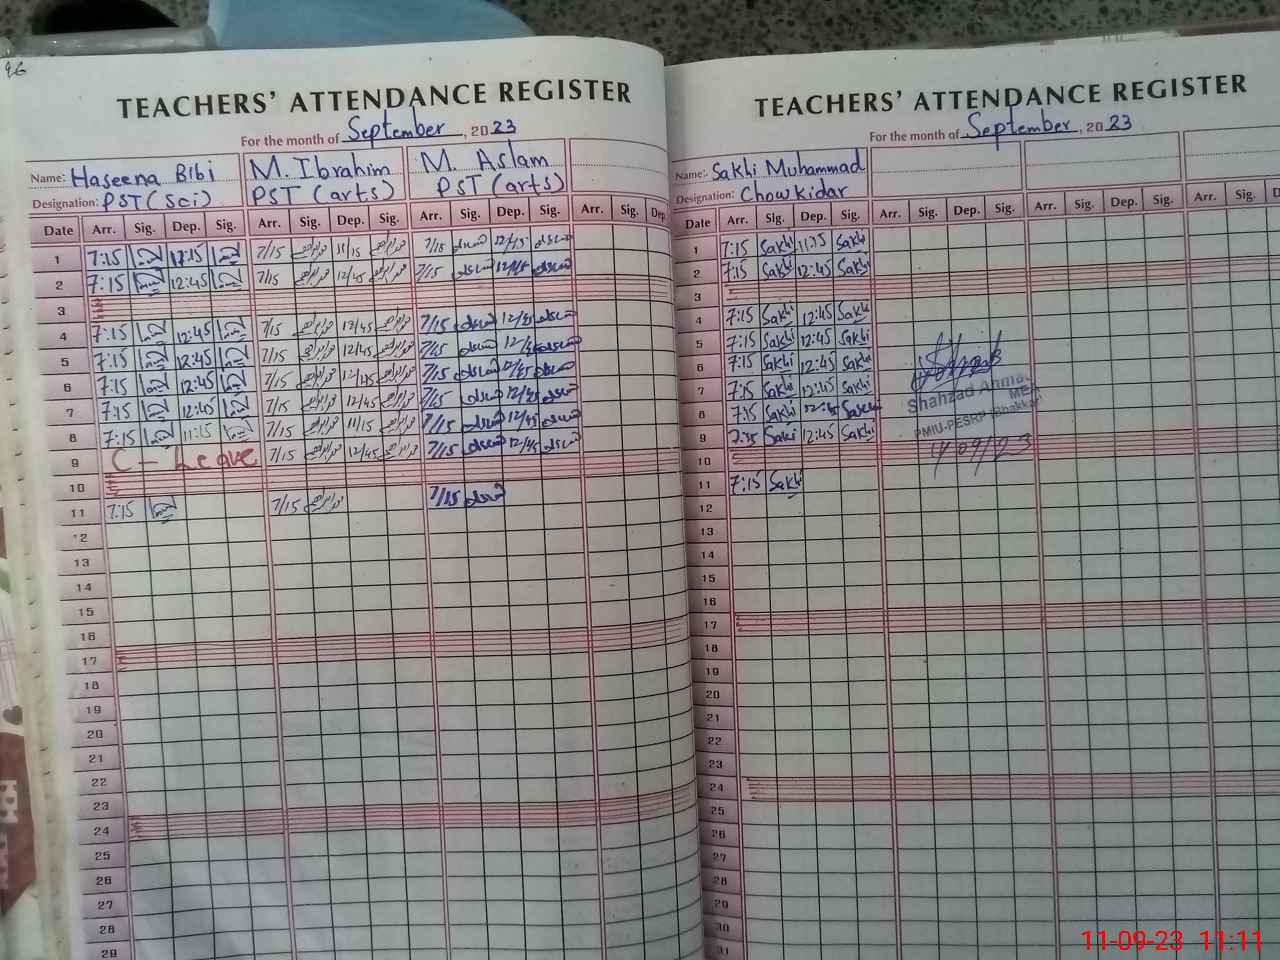 96
TEACHERS' ATTENDANCE REGISTER
For the month of September, 2023
Name: Haseena BIbi M. Ibrahim M. Aslam
Designation: PST (Sci) PST (arts) PST (arts)
Date Arr. Sig. Dep. Sig. Arr. Sig. Dep. Sig. Arr. Sig. Dep. Sig. Arr. Sig. Dep.
1 7:15 7/15 11/15 7/15 12/45
2 7:15 12:45 7/15 12/45 7/15 12/45
3
4 7:15 12:45 7/15 12/45 7/15 12/45
5 7:15 12:45 7/15 12/45 7/15 12/45
6 7:15 12:45 7/15 12/45 7/15 12/45
7 7:15 12:45 7/15 12/45 7/15 12/45
8 7:15 11:15 7/15 11/15 7/15 12/45
9 C - Leave 7/15 12/45 7/15 12/45
10
11 7:15 7/15 7/15
12
13
14
15
16
17
18
19
20
21
22
23
24
25
26
27
28
29
TEACHERS' ATTENDANCE REGISTER
For the month of September, 2023
Name: Sakhi Muhammad
Designation: Chowkidar
Date Arr. Sig. Dep. Sig. Arr. Sig. Dep. Sig. Arr. Sig. Dep. Sig. Arr. Sig. D
1 7:15 Sakhi Sakhi
2 7:15 Sakhi 12:45 Sakhi
3
4 7:15 Sakhi 12:45 Sakhi
5 7:15 Sakhi 12:45 Sakhi
6 7:15 Sakhi 12:45 Sakhi
7 7:15 Sakhi 12:45 Sakhi
8 7:15 Sakhi 12:45
9 7:15 Sakhi 12:45 Sakhi
10
11 7:15 Sakhi
12
13
14
15
16
17
18
19
20
21
22
23
24
25
26
27
28
29
30
31
Shahzad Ahmad
MEA
PMIU-PESRP (Bhakkar)
11-09-23 11:11